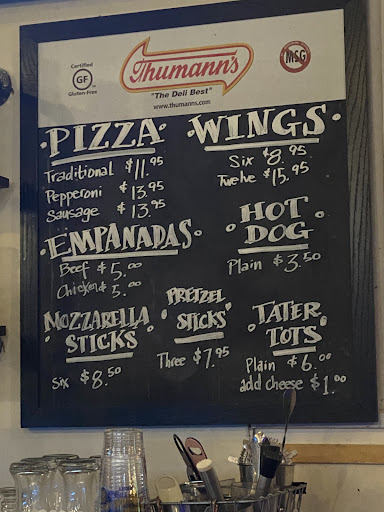 Certified
GF
Gluten-Free
Thumann's
"The Deli Best"
www.thumanns.com
MSG
PIZZA
Traditional $11.95
Pepperoni $13.95
Sausage $13.95
WINGS
Six $8.95
Twelve $15.95
EMPANADAS
Beef $5.00
Chicken $5.00
HOT
DOG
Plain $3.50
MOZZARELLA
STICKS
Six $8.50
PRETZEL
STICKS
Three $7.95
TATER
TOTS
Plain $6.00
add cheese $1.00